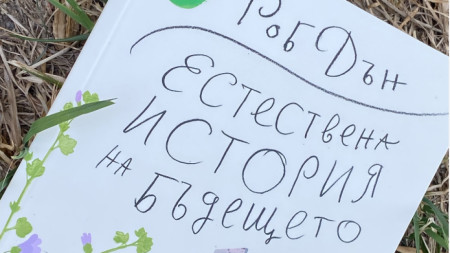 Роб Дън
Естествена
история
на
бъдещето